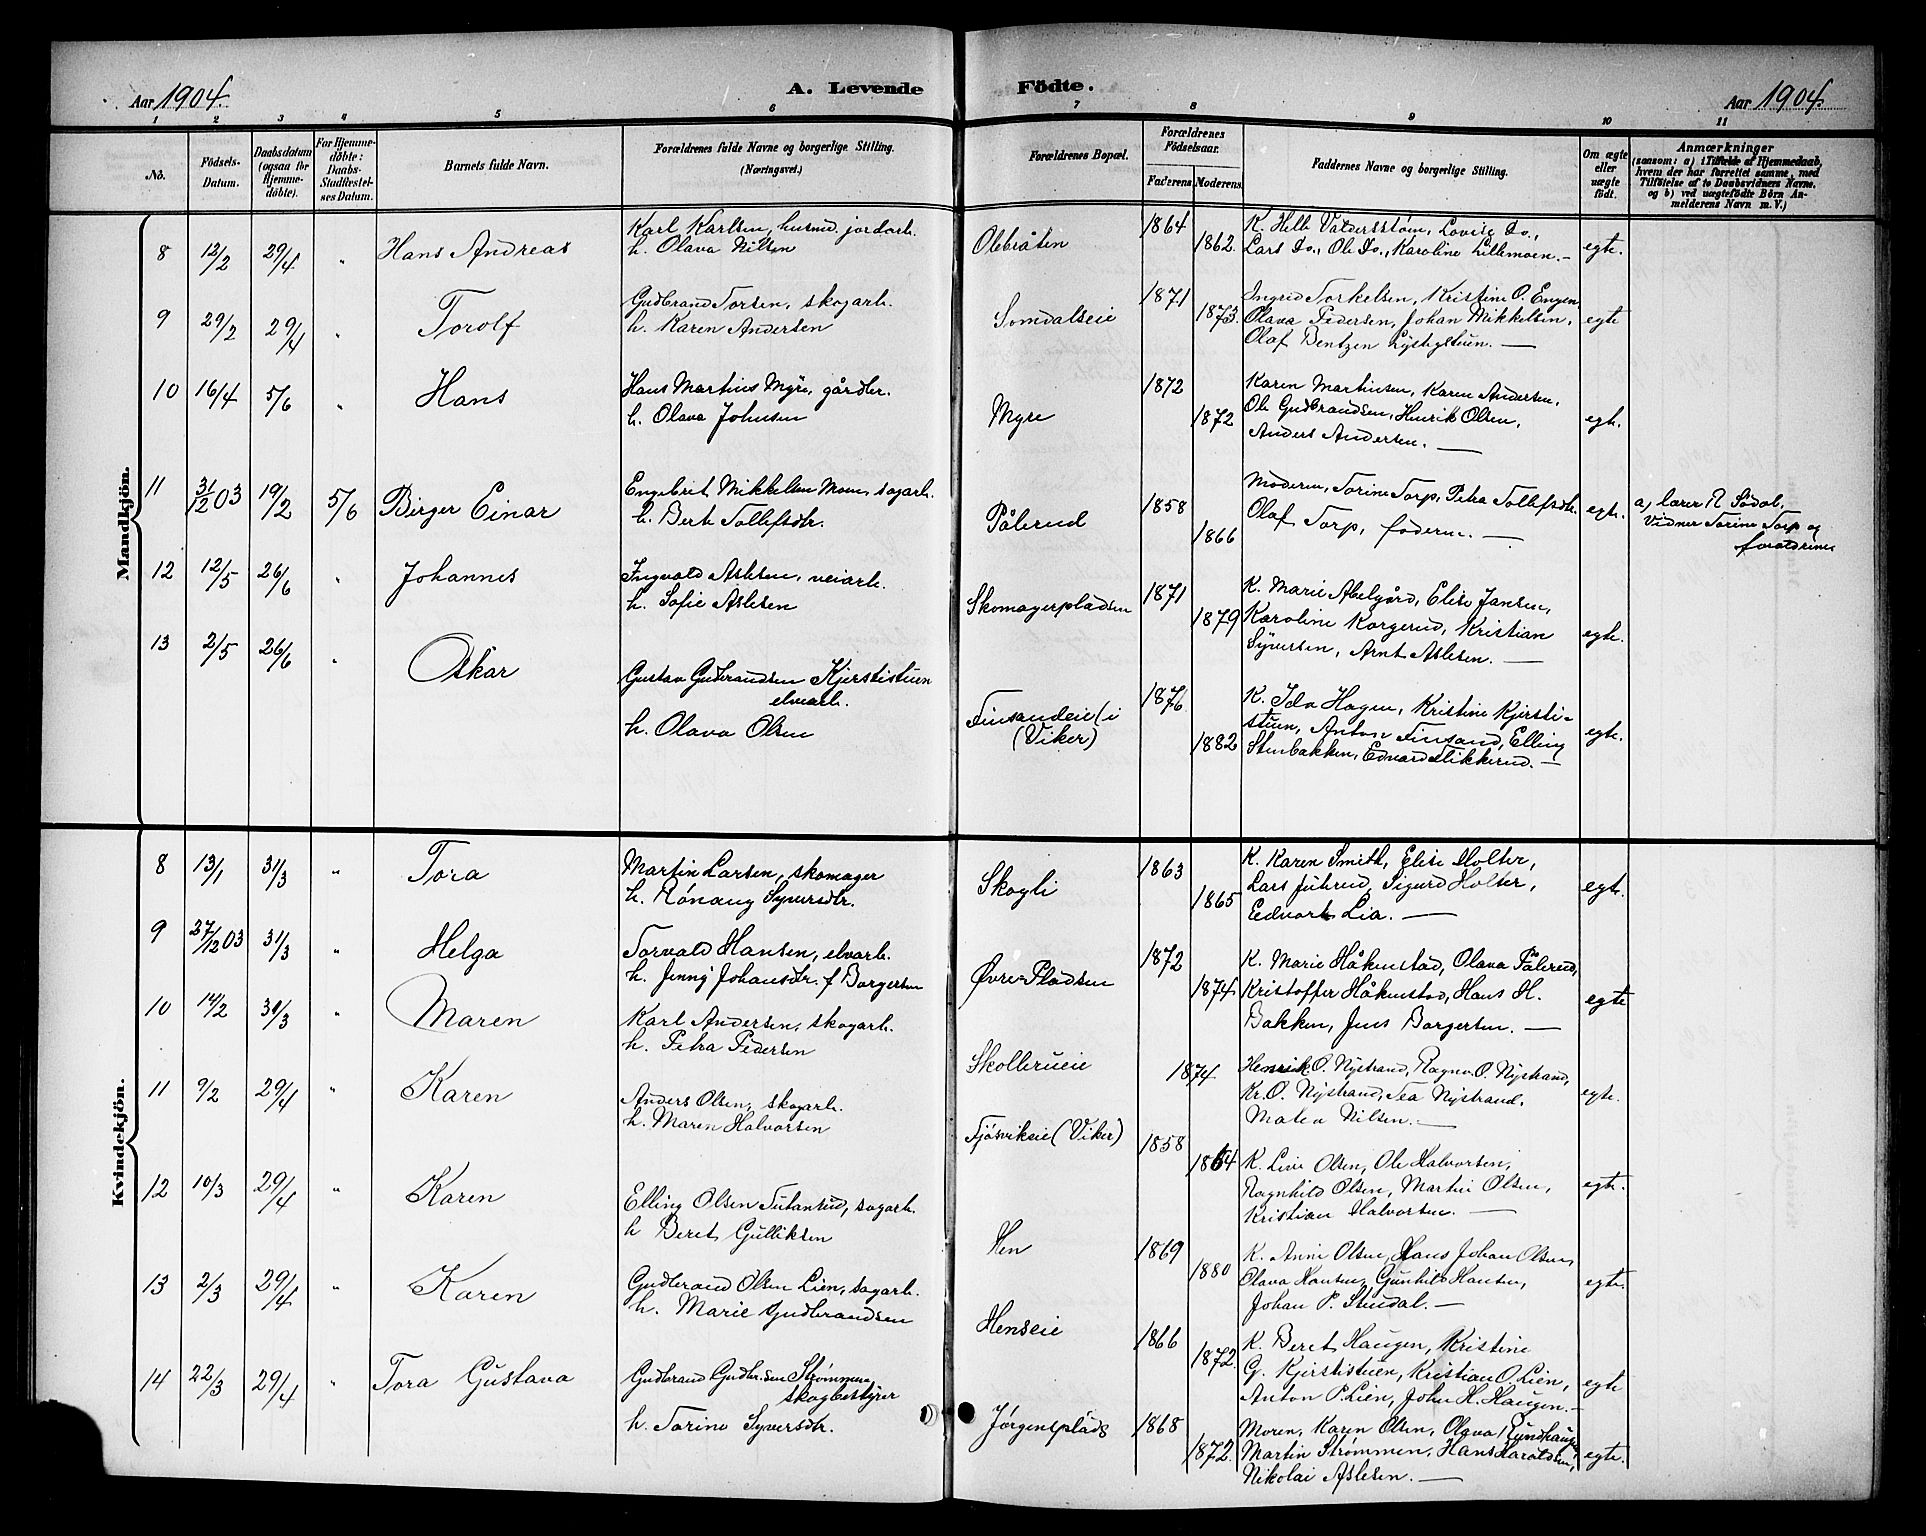 Aar 1904. A. Levende Födte. Aar 1904.
1 2 3 4 5 6 7 8 9 10 11
No.
Födsels-Datum.
Daabsdatum (ogsaa for Hjemme-döbte).
For Hjemme-döbte: Daabs-Stadfæstel-ses Datum.
Barnets fulde Navn.
Forældrenes fulde Navne og borgerlige Stilling.
(Næringsvei.)
Forældrenes Bopæl.
Forældrenes Födselsaar.
Faderens. Moderens.
Faddernes Navne og borgerlige Stilling.
Om ægte eller uægte födt.
Anmærkninger
(saasom: a) i Tilfælde af Hjemmedaab,
hvem der har forrettet samme, med
Tilföielse af to Daabsvidners Navne.
og b) ved uægtefödte Börn An-
melderens Navn m. V.)
Mandkjön.
8 12/2 29/4 " Hans Andreas
Karl Karlsen, husmd. jordarb.
h. Olava Nilsen
Olebråten 1864 1862.
K. Helle Valdersstøen, Lovise Do.,
Lars Do., Ole Do., Karoline Lillemoen. —
egte.
9 29/2 29/4 " Torolf
Gudbrand Torsen, skogarb.
h. Karen Andersen
Somdalseie 1871 1873.
Ingrid Torkelsen, Kristine O. Engen,
Olava Pedersen, Johan Mikkelsen,
Olaf Bentzen —
egte
10 16/4 5/6 " Hans
Hans Martius Myre, gårdbr.
h. Olava Johnsen
Myre 1872 1872
Karen Martinsen, Karen Andersen,
Ole Gudbrandsen, Henrik Olsen,
Anders Andersen. —
egte.
11 31/12 03 19/2 5/6 Birger Einar
Engebret Mikkelsen Moen, sagarb.
h. Berte Tollefsdtr.
Pålerud 1858 1866
Moderen, Torine Torp, Petra Tollefsdtr.
Olaf Torp, faderen. —
egte.
a) lærer R. Sødal,
Vidner Torine Torp og
forældrene
12 12/5 26/6 " Johannes
Ingvald Aslesen, veiarb.
h. Sofie Aslesen
Skomagerpladsen 1871 1879
K. Marie Abelgård, Elise Jansen,
Karoline Korgerud, Kristian
Syversen, Arnt Aslesen. —
egte.
13 2/5 26/6 " Oskar
Gustav Gudbrandsen Kjerstistuen
elvearb.
h. Olava Olsen
Finsandeie (i
(Viker) 1876 1882
K. Ida Hagen, Kristine Kjersti-
stuen, Anton Finsand, Elling
Stenbakken, Edvard Flikkerud. —
egte.
Kvindekjön.
8 13/1 31/3 " Tora
Martin Larsen, skomager
h. Rönaug Syversdtr.
Skogli 1863 1865
K. Karen Smith, Elise Holter,
Lars Julerud, Sigurd Holter,
Edvart Lia. —
egte.
9 27/12 03 31/3 " Helga
Torvald Hansen, elvarb.
h. Jenny Johansdtr. f. Borgersen
Øvre Pladsen 1872 1874
K. Marie Håkenstad, Olava Pålerud,
Kristoffer Håkenstad, Hans H.
Bakken, Jens Borgersen. —
egte
10 14/2 31/3 " Maren
Karl Andersen, skogarb.
h. Petra Pedersen
Skollerueie 1874
Henrik O. Nystrand, Ragna O. Nystrand,
Kr. O. Nystrand, Tea Nystrand,
Matea Nilsen. —
egte.
11 9/2 29/4 " Karen
Anders Olsen, skogarb.
h. Maren Halvorsen
Fjösvikeie (Viker) 1858 1864
K. Live Olsen, Ole Halvorsen,
Ragnhild Olsen, Martin Olsen,
Kristian Halvorsen. —
egte.
12 10/3 29/4 " Karen
Elling Olsen Tutansrud, sagarb.
h Beret Gulliksen
Hen 1869 1880
K. Anne Olsen, Hans Johan Olsen,
Olava Hansen, Gunhild Hansen,
Johan P. Stendal. —
egte.
13 2/3 29/4 " Karen
Gudbrand Olsen Lien, sagarb.
h. Marie Gudbrandsen
Henseie 1866 1872.
K. Beret Haugen, Kristine
G. Kjerstistuen, Kristian O. Lien,
Anton P. Lien, John H. Haugen. —
egte
14 22/3 29/4 " Tora Gustava
Gudbrand Gudbr.sen Strømmen,
skogbestyrer
h. Torine Syversdtr.
Jörgensplads 1868 1872.
Moren, Karen Olsen, Olava Rundhaugen,
Martin Strømmen, Hans Haraldsen,
Nikolai Aslesen. —
egte.